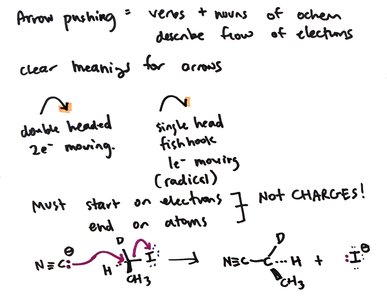 Arrow pushing = verbs + nouns of ochem
describe flow of electrons
clear meanings for arrows
double headed
2e⁻ moving.
single head
fishhook
1e⁻ moving
(radical)
Must start on electrons
end on atoms
NOT CHARGES!
N≡C:⊖ D H CH₃ I → N≡C-C D H CH₃ + :I:⊖